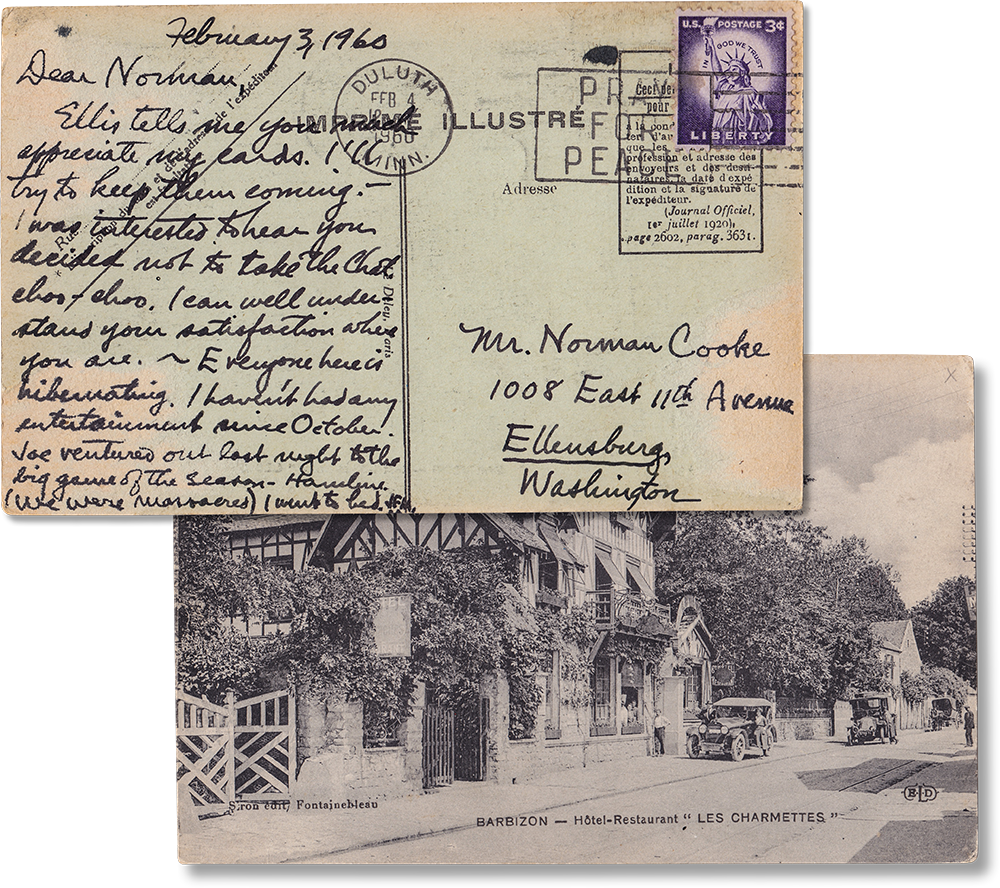 February 3, 1960
Dear Norman,
Ellis tells me you much
appreciate my cards. I'll
try to keep them coming. —
I was interested to hear you
decided not to take the Chat
choo-choo. I can well under-
stand your satisfaction where
you are. ~ Everyone here is
hibernating. I haven't had any
entertainment since October.
Joe ventured out last night to the
big game of the season - Hamline
(We were massacred) I went to bed.
DULUTH
FEB 4
1960
MINN.
PRAY
FOR
PEACE
U.S. POSTAGE 3¢
IN GOD WE TRUST
LIBERTY
IMPRIMÉ ILLUSTRÉ
Adresse
Ceci de
pour
à la cond
ters d'au
que les
profession et adresse des
envoyeurs et des desti-
nataires, la date d'expé
dition et la signature de
l'expéditeur.
(Journal Officiel,
1er juillet 1920),
page 2602, parag. 3631.
et des
de l'expéditeur
Mr. Norman Cooke
1008 East 11th Avenue
Ellensburg,
Washington
X
Siron édit, Fontainebleau
BARBIZON — Hôtel-Restaurant “ LES CHARMETTES ”
ELD